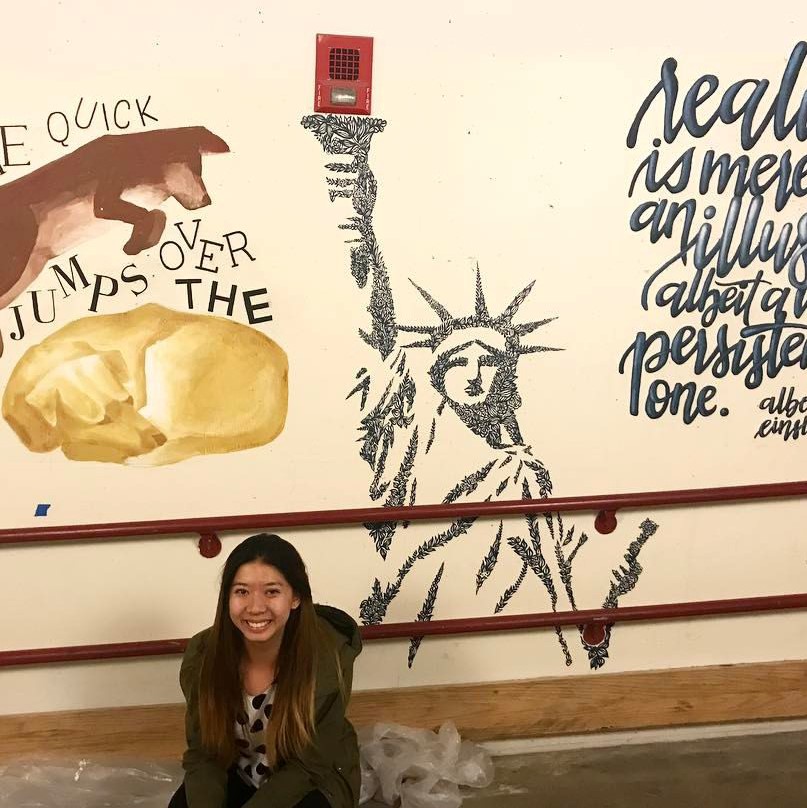 E QUICK
JUMPS OVER
THE
FIRE
FIRE
reali
is mere
an illus
albeit a
persiste
one.
albe
einst